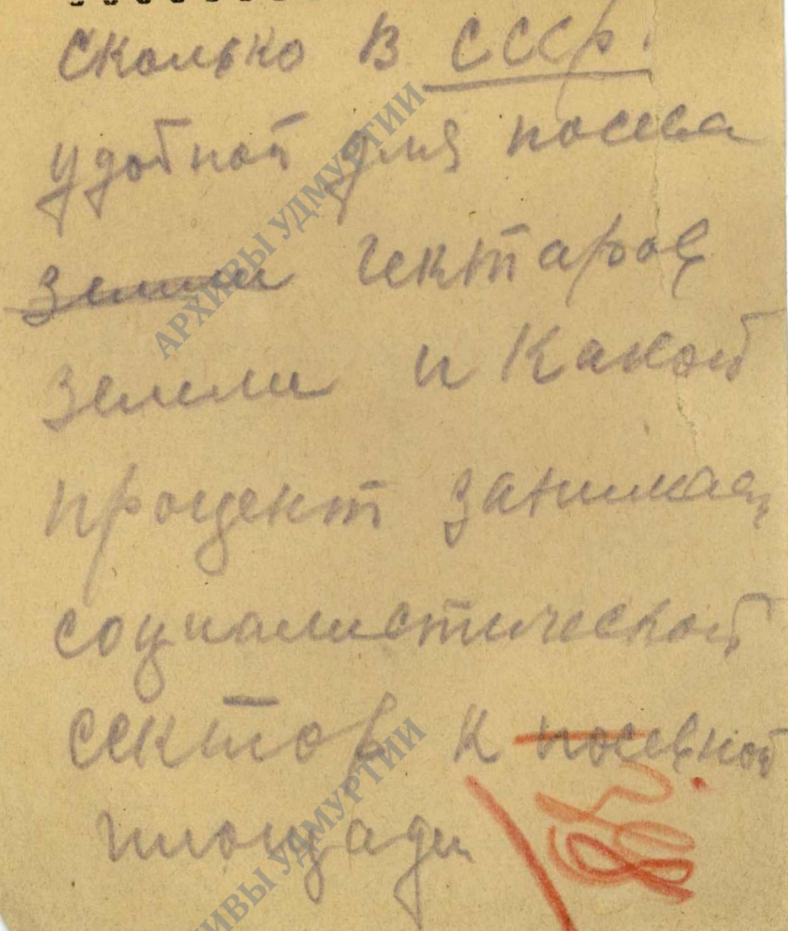 Сколько в СССР.
удобной для посева
земли гектаров
земли и Какой
процент занимает
социалистической
сектор к посевной
площади
АРХИВЫ УДМУРТИИ
АРХИВЫ УДМУРТИИ